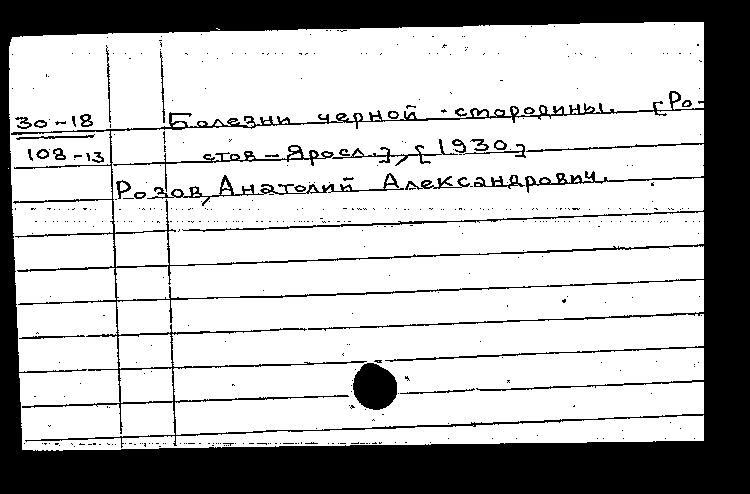 30-18 Болезни черной стородины. [Ро-
108-13 стов-Яросл.], [1930]
Розов, Анатолий Александрович.